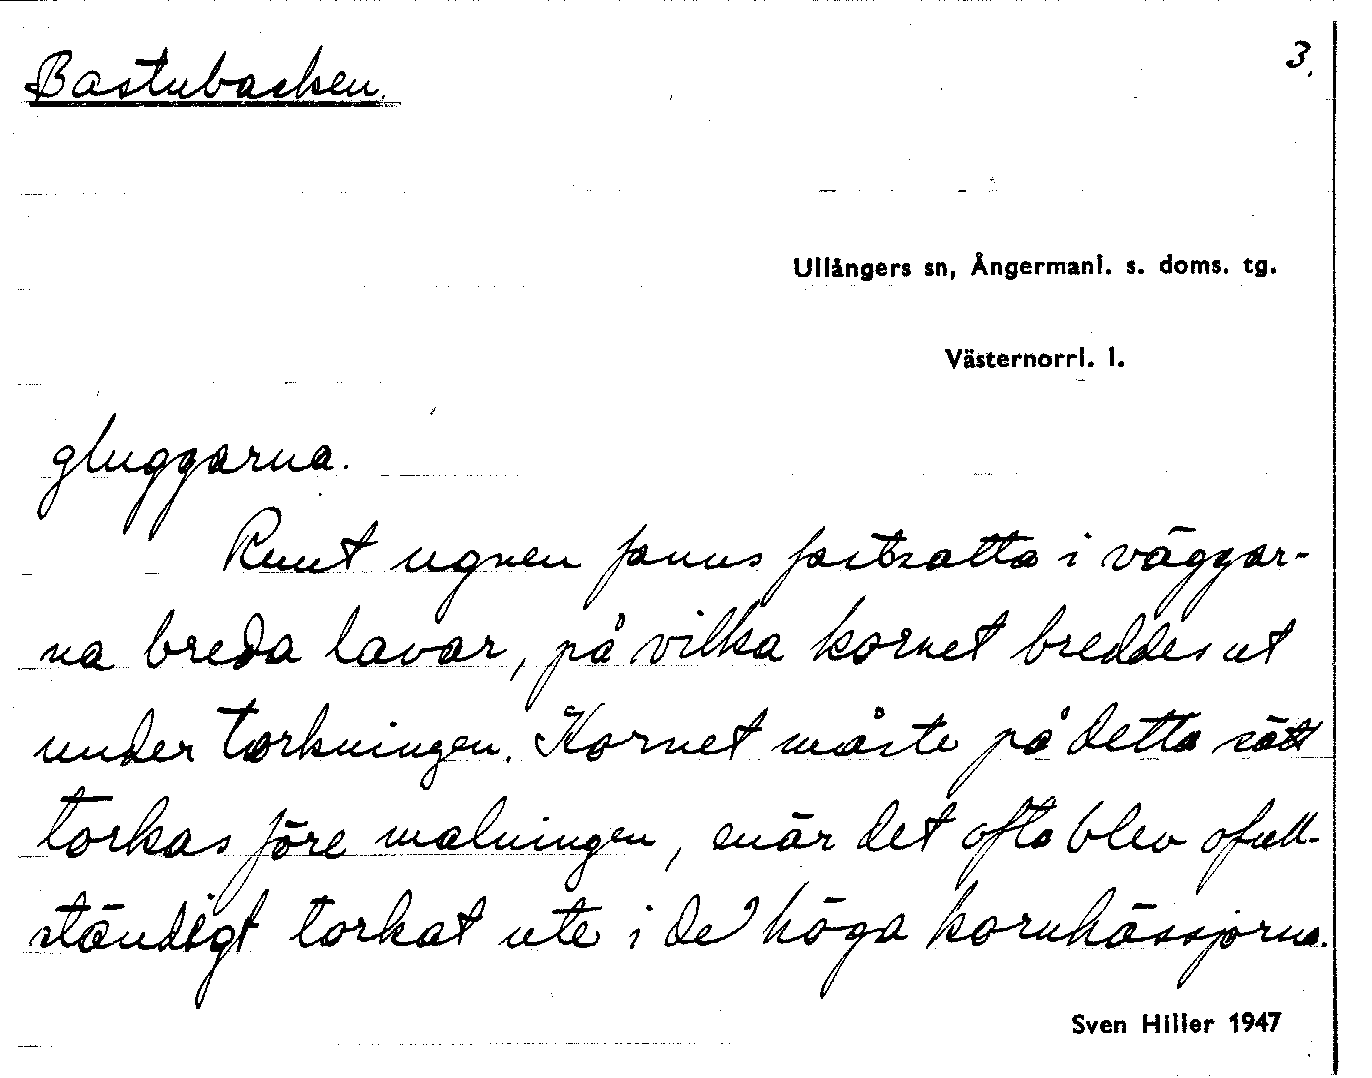 Bastubacken.
3.
Ullångers sn, Ångermanl. s. doms. tg.
Västernorrl. l.
gluggarna.
Runt ugnen fanns fastsatta i väggar-
na breda lavar, på vilka kornet breddes ut
under torkningen. Kornet måste på detta sätt
torkas före malningen, enär det ofta blev ofull-
ständigt torkat ute i de höga kornhässjorna.
Sven Hiller 1947